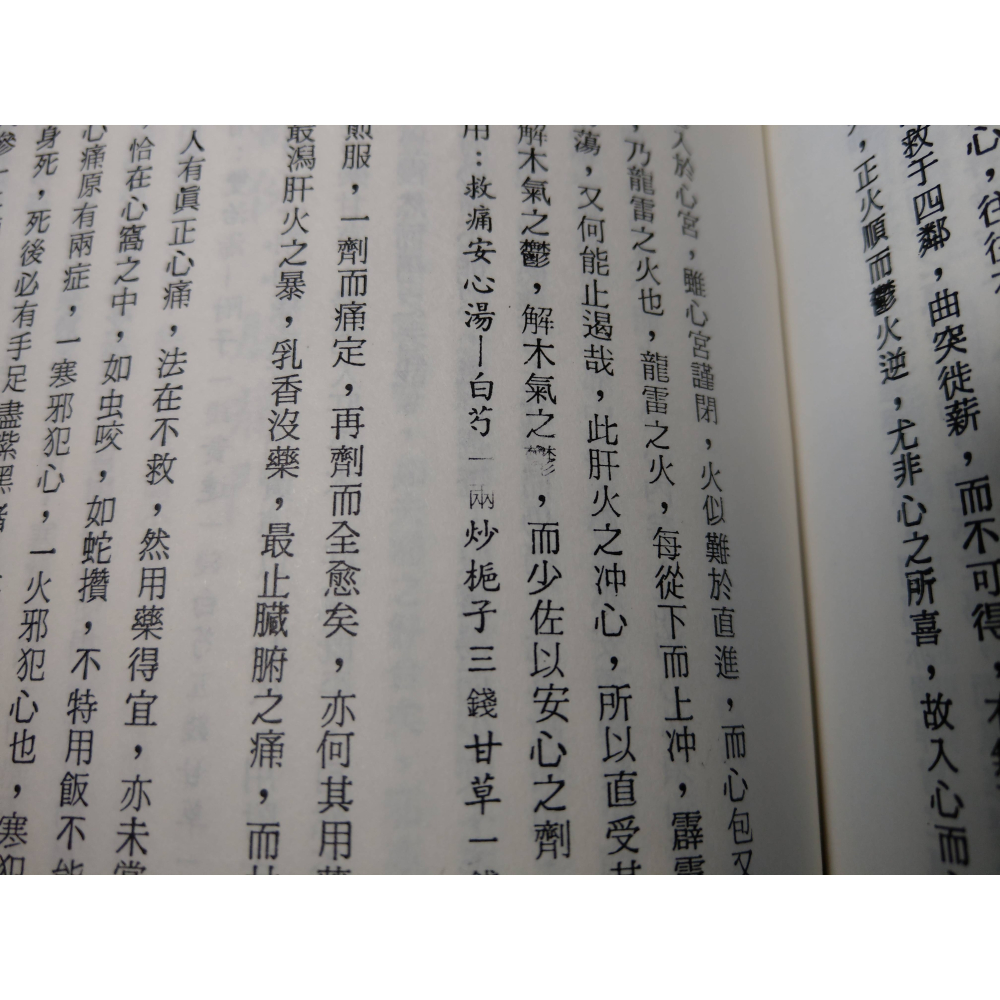 心，往後
救于四鄰，曲突徙薪，而不可得，
，正火順而鬱火逆，尤非心之所喜，故入心而
入於心宮，雖心宮謹閉，火似難於直進，而心包又
，乃龍雷之火也，龍雷之火，每從下而上冲，霹靂
蕩，又何能止遏哉，此肝火之冲心，所以直受其
解木氣之鬱，解木氣之鬱，而少佐以安心之劑
用：救痛安心湯—白芍一兩炒梔子三錢甘草一錢
煎服，一劑而痛定，再劑而全愈矣，亦何其用藥
最瀉肝火之暴，乳香沒藥，最止臟腑之痛，而甘
人有眞正心痛，法在不救，然用藥得宜，亦未嘗
，恰在心窩之中，如虫咬，如蛇攢，不特用飯不能
心痛原有兩症，一寒邪犯心，一火邪犯心也，寒犯
身死，死後必有手足盡紫黑者